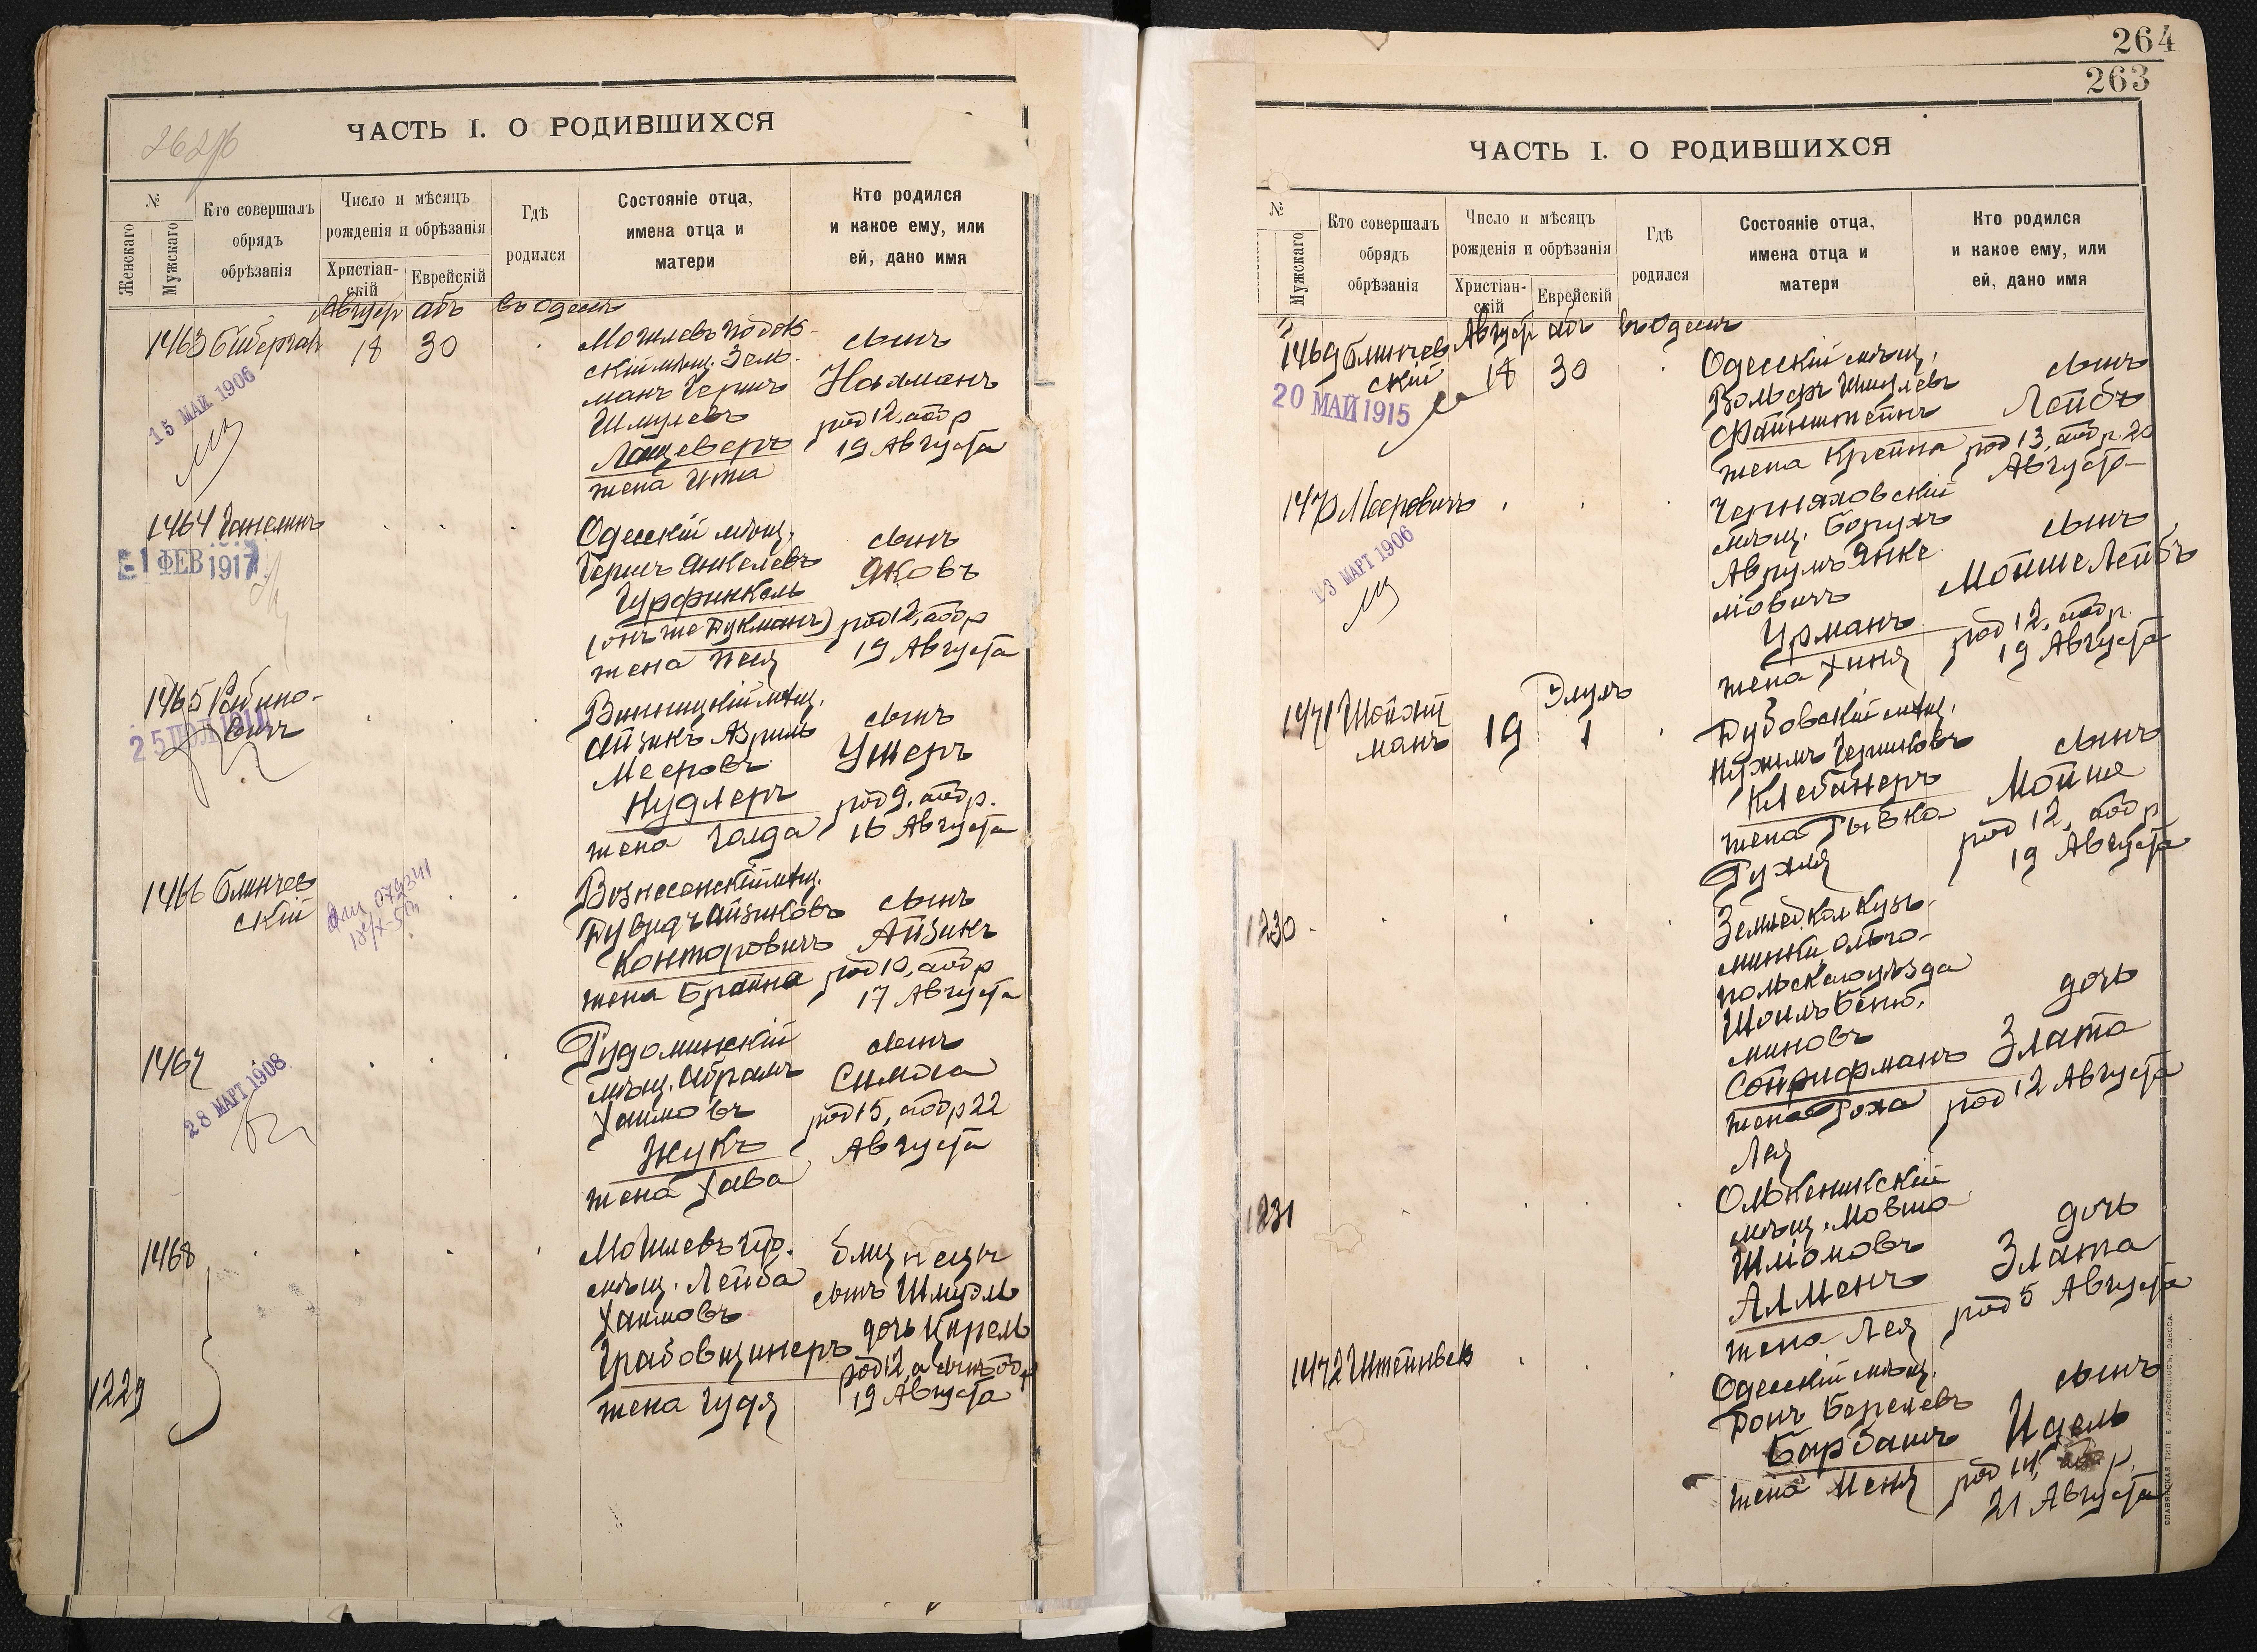 262об
ЧАСТЬ I. О РОДИВШИХСЯ
№
Женскаго
Мужскаго
Кто совершалъ
обрядъ
обрѣзанія
Число и мѣсяцъ
рожденія и обрѣзанія
Христіан-
скій
Еврейскій
Гдѣ
родился
Состояніе отца,
имена отца и
матери
Кто родился
и какое ему, или
ей, дано имя
Август абъ въ Одессѣ
1463
18 30
15 МАЙ 1906
Могилевъ Подоль-
скій мѣщ. Зель-
манъ Гершъ
Шмулевъ
жена Ита
сынъ
Нахманъ
род 12, а обр
19 Августа
1464
1 ФЕВ 1917
Одесскій мѣщ.
Гершъ Янкелевъ
Гурфинкель
(онъ же Дукманъ)
жена Песя
сынъ
Яковъ
род 12, а обр
19 Августа
1465 Рабино-
вичъ
Винницкій мѣщ.
Айзикъ Азриль
Мееровъ
Нудлеръ
жена Голда
сынъ
Ушеръ
род 9, а обр.
16 Августа
1466 Блинчев
скій
Вознесенскій мѣщ.
Дувидъ Айзиковъ
Конторовичъ
жена Брайна
сынъ
Айзикъ
род 10, а обр
17 Августа
1467
28 МАРТ 1908
мѣщ. Абрамъ
Хаимовъ
Жукъ
жена Хава
сынъ
Симха
род 15, а обр 22
Августа
1468
1229
Могилевъ Губ.
мѣщ. Лейба
Хаимовъ
Грабовщинеръ
жена Гудя
близнецы
сынъ Шмуэль
дочь Цирель
род 12, а сынъ обр
19 Августа
264
263
ЧАСТЬ I. О РОДИВШИХСЯ
№
Мужскаго
Кто совершалъ
обрядъ
обрѣзанія
Число и мѣсяцъ
рожденія и обрѣзанія
Христіан-
скій
Еврейскій
Гдѣ
родился
Состояніе отца,
имена отца и
матери
Кто родился
и какое ему, или
ей, дано имя
Август абъ въ Одессѣ
1469 Блинчев
скій 18 30
20 МАЙ 1915
Одесскій мѣщ.
Вольфъ Шмулевъ
Файнштейнъ
жена Крейна
сынъ
Лейбъ
род 13, а обр. 20
Августа
1470 Мееровичъ
13 МАРТ 1906
Черняховскій
мѣщ. Борухъ
Аврумъ Янке
ліовичъ
Урманъ
жена Хиня
сынъ
Мойше Лейбъ
род 12, а обр.
19 Августа
1471 Шойхет
манъ 19 Элулъ 1
Дубовскій мѣщ.
Нухимъ Гершковъ
Клебанеръ
жена Рывка
Рухля
сынъ
Мойше
род 12, а обр
19 Августа
1230
Землед. Кол. Кузь-
минки, Ольго-
польскаго уѣзда
Шоилъ Беню-
миновъ
жена Роха
Лея
дочь
Злата
род 12 Августа
1231
Олькеникскій
мѣщ. Мовша
Шліомовъ
Алменъ
жена Лея
дочь
Злата
род 5 Августа
1472
Одесскій мѣщ.
Берелевъ
Барбашъ
жена Шеня
сынъ
Идель
род 14, а обр.
21 Августа